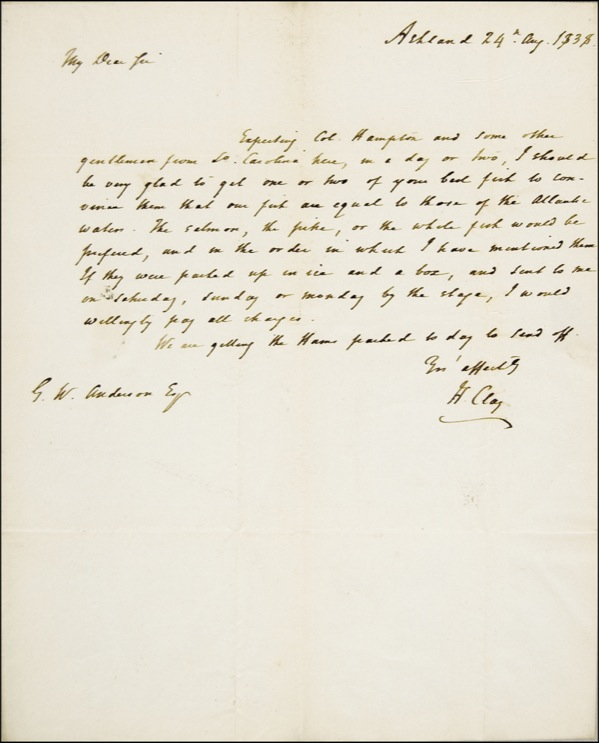 Ashland 24th Aug. 1838.
My Dear Sir
Expecting Col. Hampton and some other
gentlemen from So. Carolina here, in a day or two, I should
be very glad to get one or two of your best fish to con-
vince them that our fish are equal to those of the Atlantic
waters. The salmon, the pike, or the white fish would be
prefered, and in the order in which I have mentioned them
If they were packed up in ice and a box, and sent to me
on saturday, sunday or monday by the stage, I would
willingly pay all charges.
We are getting the Hams packed to day to send off.
Yrs' affectly
H. Clay
G. W. Anderson Esq